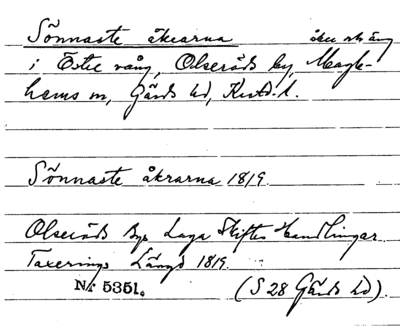 Sönnaste åkrarna åker och äng
i Östre vång, Olseröds by, Magle-
hems sn, Gärds hd, Krist. l.
Sönnaste åkrarna 1819
Olseröds Bys Laga Skiftes Handlingar
Taxerings Längd 1819.
Nr 5351. (S 28 Gärds hd).